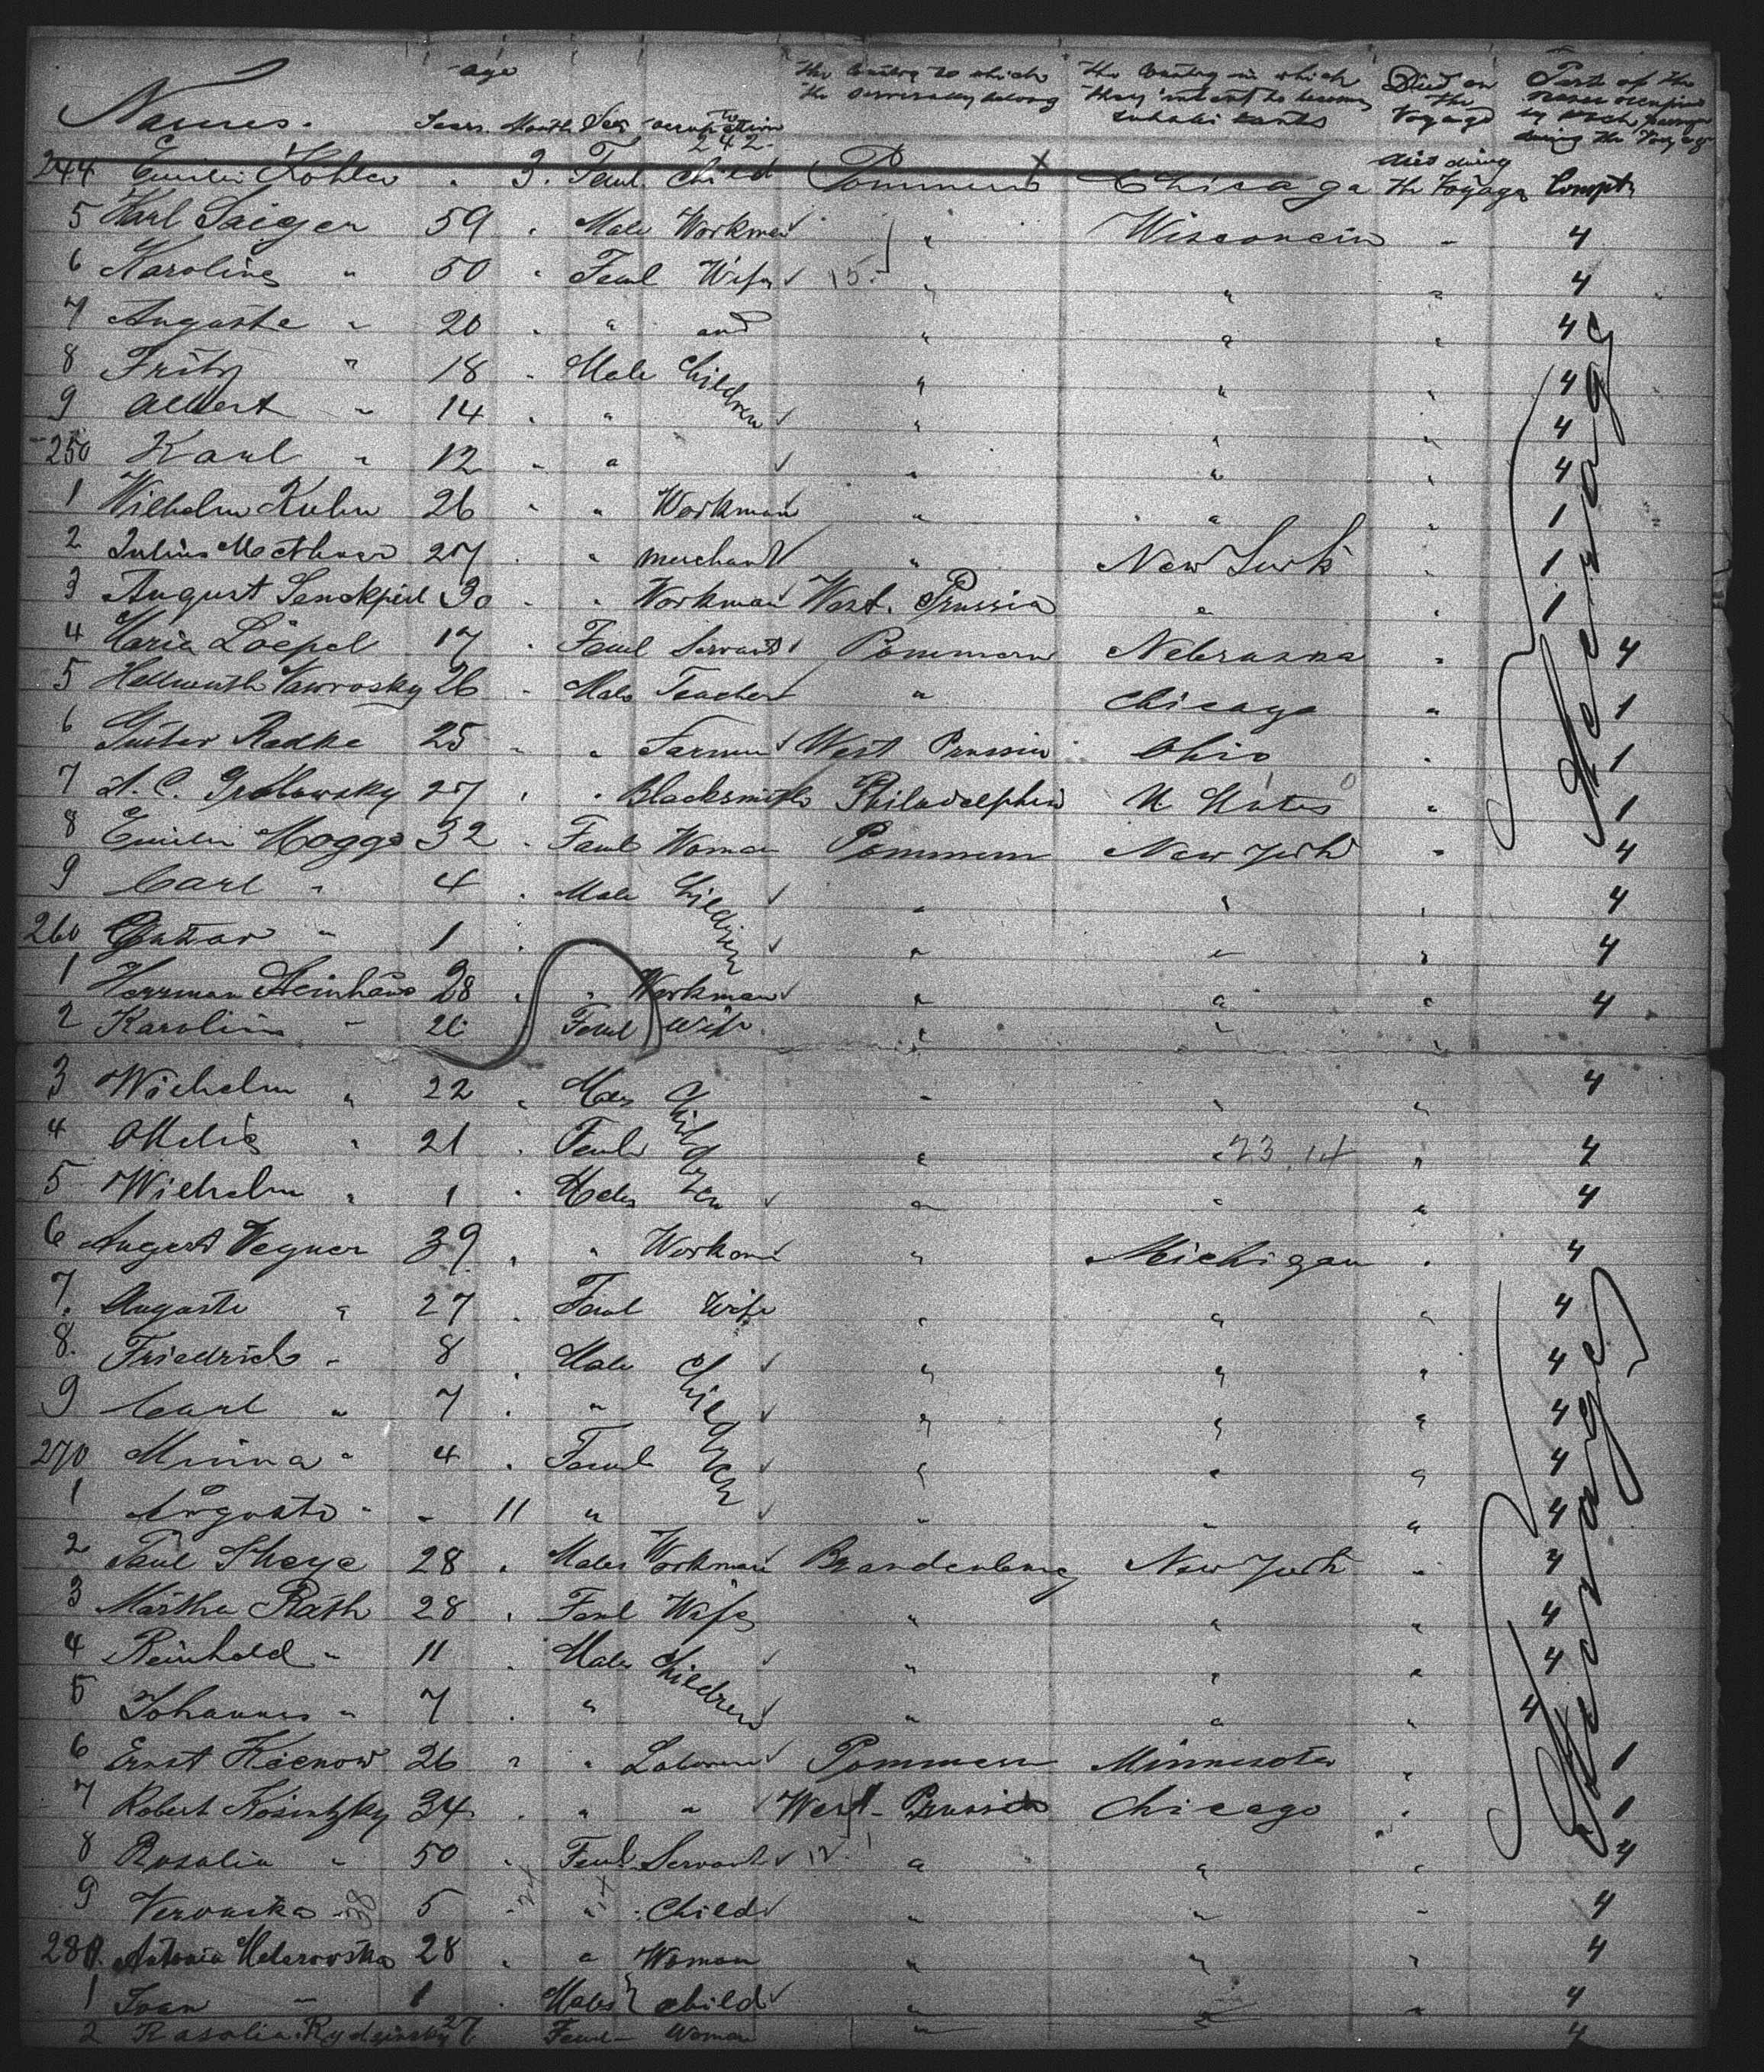 Names. age Years. Month Sex occupation the Country to which the severally belong the Country in which they intent to become inhabitants Died on the Voyage Part of the vessel occupied by each passenger during the Voyage
242
244 Emilie Kohler " 3. Feml. Child Pommern Chicago died during the Voyage Compt.
5 Karl Saiger 59 " Male Workman " Wisconsin " 4
6 Karoline " 50 " Feml Wife 15. " " " 4
7 Auguste " 20 " " and " " " 4
8 Fritz " 18 " Male Children " " " 4
9 Albert " 14 " " " " " 4
250 Karl " 12 " " " " " 4
1 Wilhelm Kuhn 26 " " Workman " " " 1
2 Julius 27 " " merchant " New York " 1
3 August 30 " " Workman West. Prussia " " 1
4 Maria Loepel 17 " Feml Servant Pommern Nebraska " 4
5 Hellmuth 26 " Male Teacher " Chicago " 1
6 Gustav Radke 25 " " Farmer West Prussia Ohio " 1
7 A. C. 27 " " Blacksmith Philadelphia U States " 1
8 Emilie Hogge 32 " Feml Woman Pommern New York " 4
9 Carl " 4 " Male Children " " " 4
260 Gustav " 1 " " " " 4
1 Herrman Steinhaus 28 " " Workman " " " 4
2 Karolina " 26 " Feml Wife " " "
3 Wilhelm " 22 " Male Children " " " 4
4 Ottelie " 21 " Feml " " 23.14 " 4
5 Wilhelm " 1 " Male " " " 4
6 August Wegner 39 " " Workman " Michigan " 4
7. Auguste " 27 " Feml Wife " " " 4
8. Friedrich " 8 " Male Children " " " 4
9 Carl " 7 " " " " " 4
270 Minna " 4 " Feml " " " 4
1 Auguste " - 11 " " " " 4
2 Paul Sheye 28 " Male Workman Brandenburg New York " 4
3 Martha Rath 28 " Feml Wife " " " 4
4 Reinhold " 11 " Male Children " " " 4
5 Johannes " 7 " " " " " 4
6 Ernst Kienow 26 " " Laborer Pommern Minnesota " 1
7 Robert Kosintzky 34 " " " West-Prussia Chicago " 1
8 Rosalia " 50 " Feml Servant 12. " " " 4
9 Veronika " 5 " " Child " " " 4
280. Antonia 28 " " Woman " " " 4
1 Ivan " 1 " Male Child " " " 4
2 Rosalia 27 Feml Woman " " 4
Steerage
Steerage